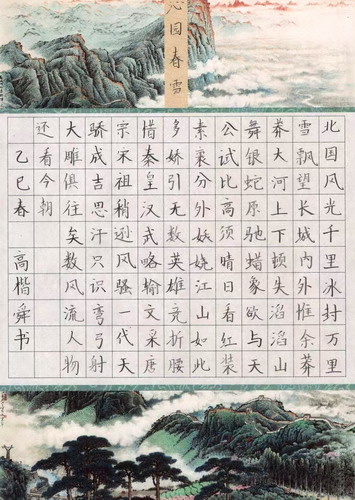 沁园春雪
北国风光千里冰封万里
雪飘望长城内外惟余莽
莽大河上下顿失滔滔山
舞银蛇原驰蜡象欲与天
公试比高须晴日看红装
素裹分外妖娆江山如此
多娇引无数英雄竞折腰
惜秦皇汉武略输文采唐
宗宋祖稍逊风骚一代天
骄成吉思汗只识弯弓射
大雕俱往矣数风流人物
还看今朝
乙巳春 高楷舜书